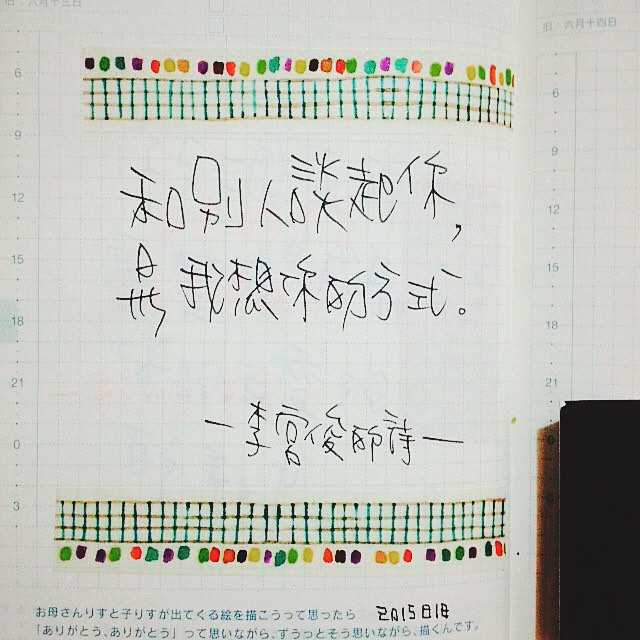 旧：六月十三日
旧：六月十四日
6
9
12
15
18
21
0
3
6
9
12
15
18
和別人談起你，
是我想你的方式。
—李宮俊的詩—
お母さんりすと子りすが出てくる絵を描こうって思ったら
「ありがとう、ありがとう」って思いながら、ずうっとそう思いながら、描くんです。